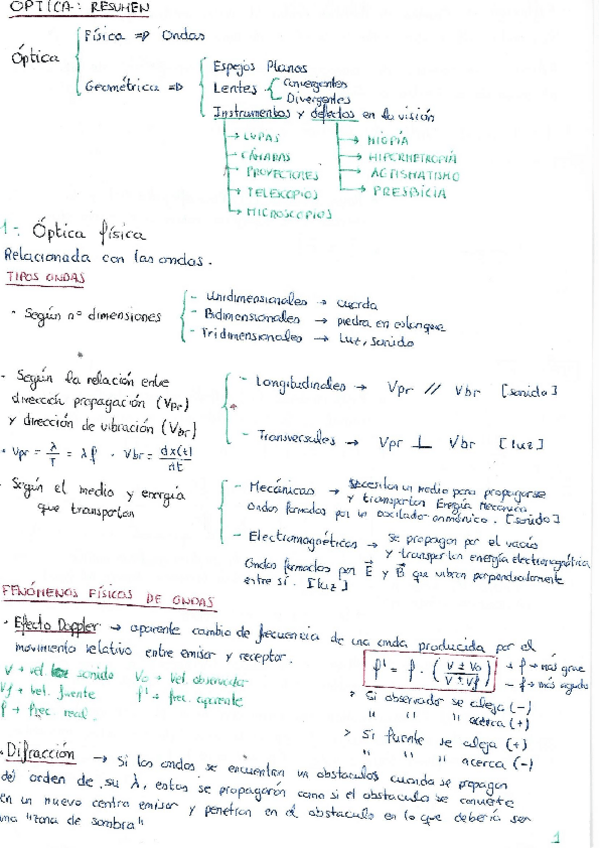 OPTICA: RESUMEN
Óptica
Física => Ondas
Geométrica =>
Espejos Planos
Lentes
Convergentes
Divergentes
Instrumentos y defectos en la visión
→ LUPAS
→ CÁMARAS
→ PROYECTORES
→ TELESCOPIOS
→ MICROSCOPIOS
→ MIOPÍA
→ HIPERMETROPÍA
→ ASTIGMATISMO
→ PRESBICIA
1-. Óptica física
Relacionada con las ondas.
TIPOS ONDAS
· Según nº dimensiones
- Unidimensionales → cuerda
- Bidimensionales → piedra en estanque
- Tridimensionales → Luz, sonido
- Según la relación entre
dirección propagación (Vpr)
y dirección de vibración (Vbr)
· Vpr = λ/T = λf · Vbr = dx(t)/dt
- Longitudinales → Vpr // Vbr [sonido]
- Transversales → Vpr ⊥ Vbr [luz]
- Según el medio y energía
que transportan
- Mecánicas → Necesitan un medio para propagarse
y transportan Energía Mecánica
Ondas formadas por un oscilador armónico. [sonido]
- Electromagnéticas → Se propagan por el vacío
y transportan energía electromagnética
Ondas formadas por E⃗ y B⃗ que vibran perpendicularmente
entre sí. [luz]
FENÓMENOS FÍSICOS DE ONDAS
· Efecto Doppler → aparente cambio de frecuencia de una onda producida por el
movimiento relativo entre emisor y receptor.
V → vel sonido Vo → vel observador
Vf → vel. fuente f' → frec. aparente
f → frec real.
f' = f · (V ± Vo / V ± Vf)
+ f → más grave
- f → más agudo
> Si observador se aleja (-)
" " " acerca (+)
> Si fuente se aleja (+)
" " " acerca (-)
· Difracción → Si las ondas se encuentran un obstáculos cuando se propagan
del orden de su λ, estas se propagarán como si el obstáculo se convierte
en un nuevo centro emisor y penetran en el obstáculo en lo que debería ser
una "zona de sombra"
1